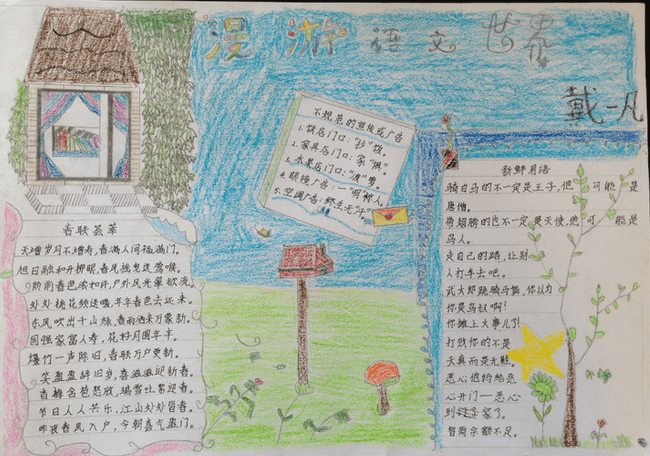 漫游语文世界
戴一凡
不规范的宣传或广告
1.饭店门口:“抄”饭。
2.家具店门口:家“俱”。
3.水果店门口:“波”萝。
4.眼镜广告:一“明”惊人。
5.空调广告:终生无“汗”
春联荟萃
天增岁月人增寿,春满人间福满门。
旭日融和开柳眼,春风揺曳送莺喉。
阶前春色浓如许,户外风光翠欲流。
处处桃花频送暖,年年春色去还来。
东风吹出千山绿,春雨洒来万象新。
国强家富人寿,花好月圆年丰。
爆竹一声除旧,春联万户更新。
笑盈盈辞旧岁,喜滋滋迎新春。
春梅含苞怒放,瑞雪吐絮迎春。
节日人人共乐,江山处处皆春。
昨夜春风入户,今朝喜气盈门。
新鲜用语
骑白马的不一定是王子,他 可能是
唐僧。
带翅膀的也不一定是天使,他可 能是
鸟人。
走自己的路,让别
人打车去吧。
武大郎跳骑马舞,你以为
你是鸟叔啊!
你摊上大事儿了!
打败你的不是
天真而是无鞋。
恶心他妈给恶
心开门—恶心
到家了。
智商余额不足。